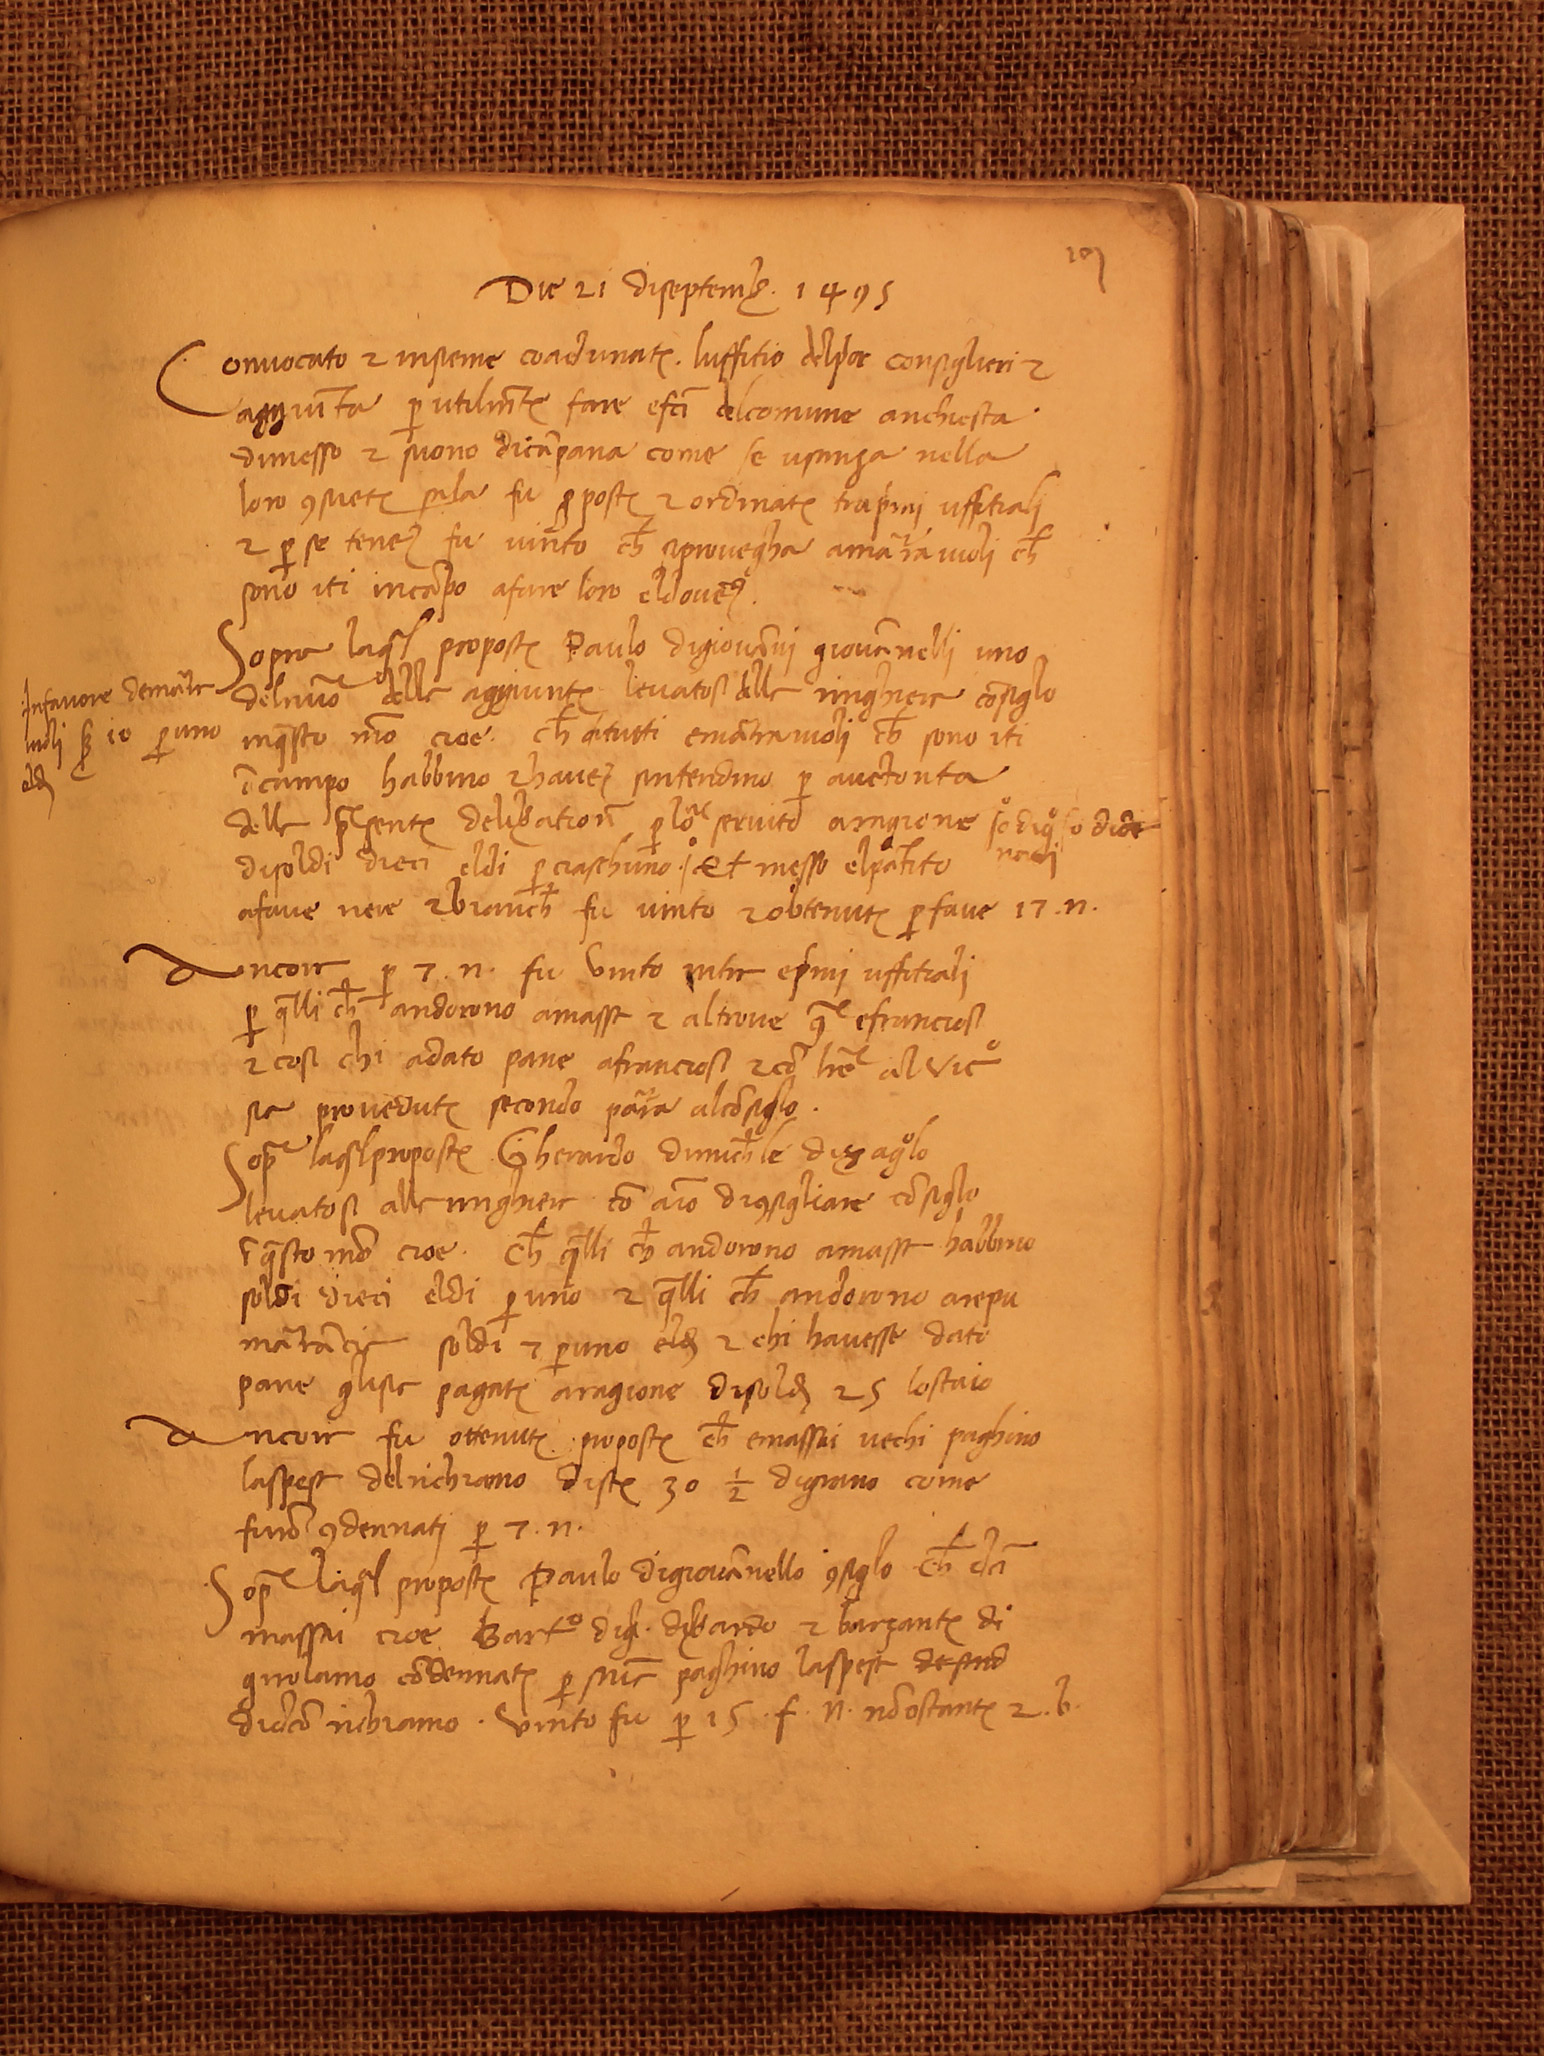 107
Die 21 diseptemb. 1495
Convocato & insieme coadunato. luffitio delpor Consiglieri &
aggiunta p utilmte fare efcti delcomune a richiesta
dimesso & suono dicapana come se usanza nella
loro 9sueta sala fu proposto & ordinato trapimi uffitiali
& p se tene fu vinto ch siprovegha amarraiuoli ch
sono iti incapo afare loro eldovere.
Sopra laql proposta Paulo digiovani giovanelli uno
delnuo della aggiunta levatosi alla ringhiera cosiglo
inqsto mo cioe. ch atutti emarraiuoli ch sono iti
icampo habbino & haver sintendino p auctorita
della psente delibatione p loro servito aragione
disoldi dieci eldi p ciaschuno. Et messo elpartito
afave nere & bianch fu vinto & obtenuto p fave 17. n.
Infavore demarra
iuoli s 10 p uno
eldi
Ancora p 7. n. fu vinto intra epimi uffitiali
p qlli ch andorono amassa & altrove efranciosi
& cosi chi adato pane afranciosi al vico
sia proveduto secondo parra alcosiglo.
Sopra laqlproposta Gherardo dimichle
levatosi alla ringhiera co aio di 9sigliare cosiglo
i qsto mo cioe. Ch qlli ch andorono amassa habbino
soldi dieci eldi p uno & qlli ch andorono arepu
soldi 7 p uno eldi & chi havesse dato
pane glisia pagato aragione disoldi 25 lostaio
Ancora fu ottenuto proposto ch emassai vechi paghino
laspesa delrichiamo dista 30 1/2 digrano come
furo 9dennati p 7. n.
Sopra laqal proposta Paulo digiovanello 9siglo ch dcti
massai cioe Barto & barzante di
girolamo codennati p paghino laspesa
didcto richiamo. Vinto fu p 15. f. n. nostante 2. b.